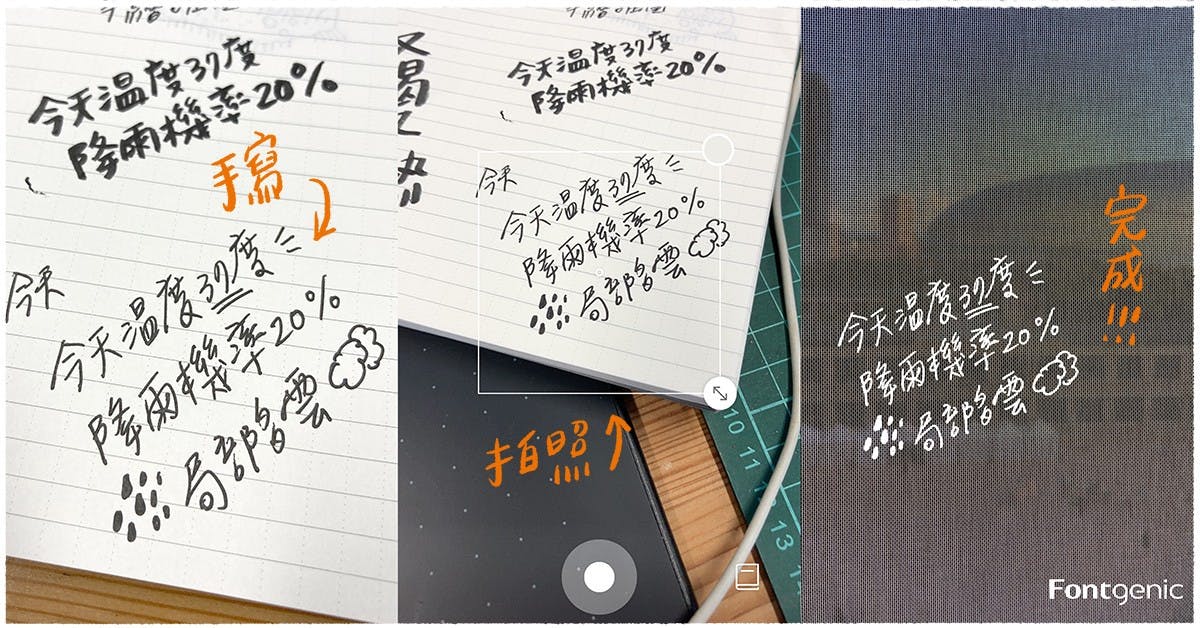 今天溫度37度
降雨機率20%
手寫
今天
今天溫度37度
降雨機率20%
局部陰雲
今天溫度37度
降雨機率20%
今天
今天溫度37度
降雨機率20%
局部陰雲
拍照
10 11
13
今天溫度37度
降雨機率20%
局部陰雲
完成!!!
Fontgenic